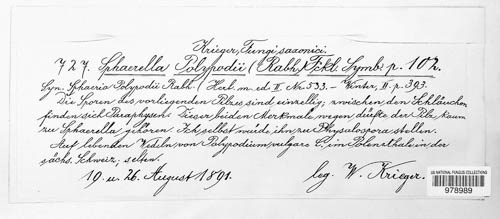 Krieger, Fungi saxonici.
727. Sphaerella Polypodii (Rabh.) Fckl. Symb. p. 102.
Syn. Sphaeria Polypodii Rabh. (Herb. m. ed. II Nr. 533. – Winter, II. p. 393.
Die Sporen des vorliegenden Pilzes sind einzellig, zwischen den Schläuchen
finden sich Paraphysen. Dieser beiden Merkmale wegen dürfte der Pilz kaum
zu Sphaerella gehören. Ich selbst würde ihn zu Physalospora stellen.
Auf lebenden Wedeln von Polypodium vulgare L., im Polenzthale in der
sächs. Schweiz; selten.
19. u. 26. August 1891. leg. W. Krieger.
US NATIONAL FUNGUS COLLECTIONS
978989